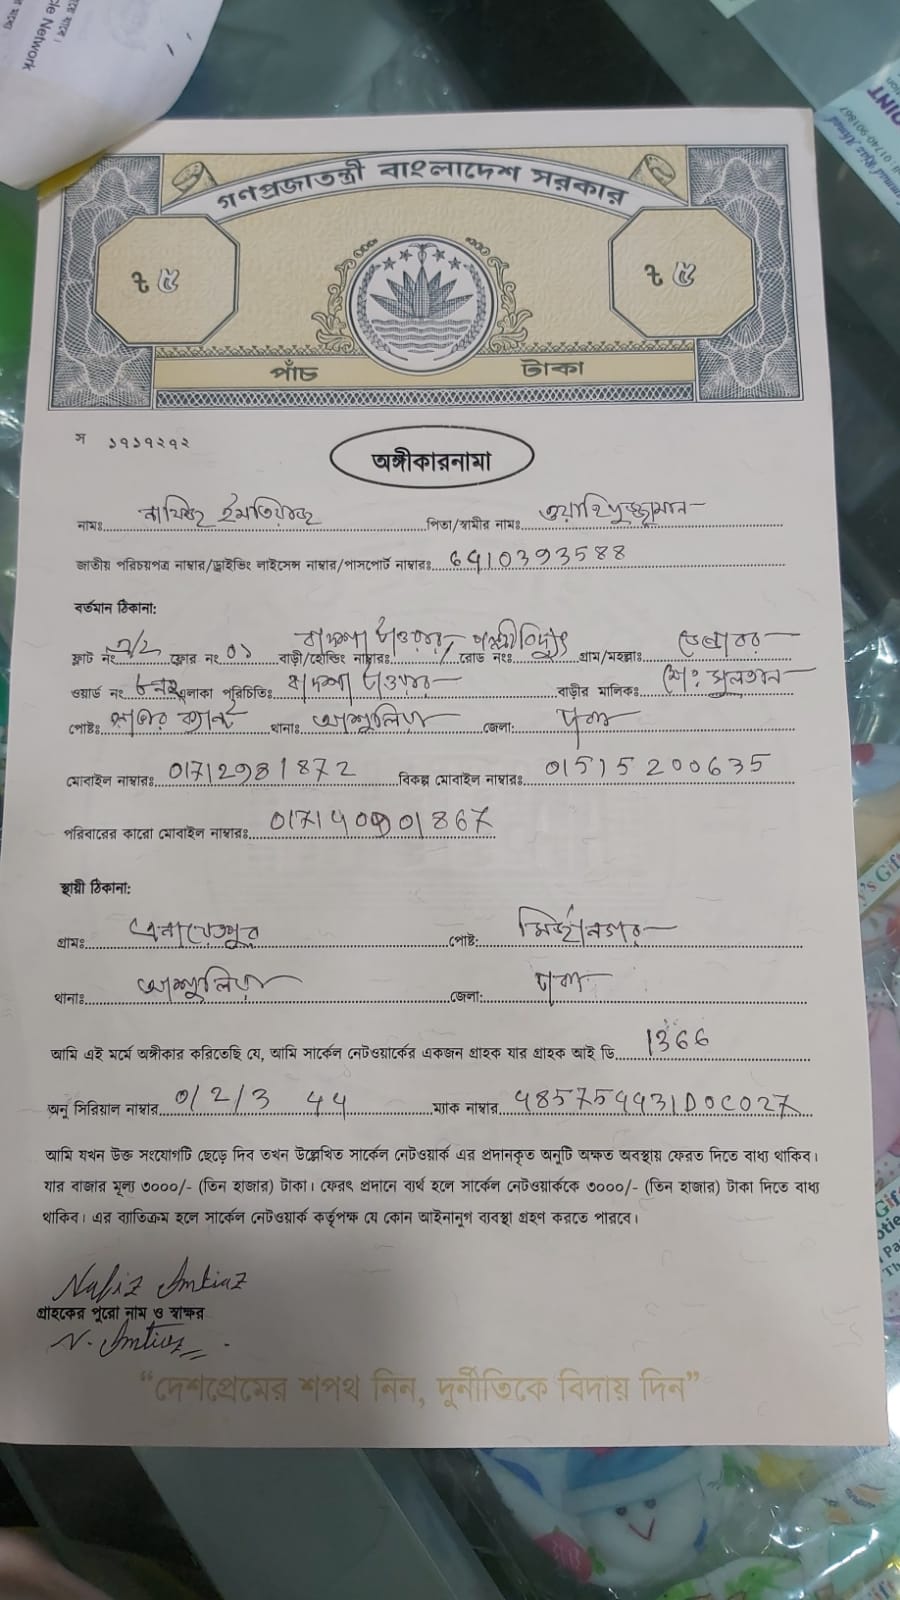 গণপ্রজাতন্ত্রী বাংলাদেশ সরকার
৳ ৫ ৳ ৫
পাঁচ টাকা
স ১৭১৭২৭২
অঙ্গীকারনামা
নামঃ নাফিজ ইমতিয়াজ পিতা/স্বামীর নামঃ ওয়াহিদুজ্জামান
জাতীয় পরিচয়পত্র নাম্বার/ড্রাইভিং লাইসেন্স নাম্বার/পাসপোর্ট নাম্বারঃ 6910393588
বর্তমান ঠিকানা:
ফ্লাট নং ফ্লোর নং ০১ বাড়ী/হোল্ডিং নাম্বারঃ রোড নংঃ পল্লীবিদ্যুৎ গ্রাম/মহল্লাঃ
ওয়ার্ড নং এলাকা পরিচিতিঃ বাড়ীর মালিকঃ মোঃ সুলতান
পোষ্টঃ সাভার ক্যান্ট থানাঃ আশুলিয়া জেলা: ঢাকা
মোবাইল নাম্বারঃ 01712981872 বিকল্প মোবাইল নাম্বারঃ 01515200635
পরিবারের কারো মোবাইল নাম্বারঃ
স্থায়ী ঠিকানা:
গ্রামঃ এনায়েতপুর পোষ্ট: মির্জানগর
থানাঃ আশুলিয়া জেলা: ঢাকা
আমি এই মর্মে অঙ্গীকার করিতেছি যে, আমি সার্কেল নেটওয়ার্কের একজন গ্রাহক যার গ্রাহক আই ডি 1366
অনু সিরিয়াল নাম্বার 0/2/3 44 ম্যাক নাম্বার
আমি যখন উক্ত সংযোগটি ছেড়ে দিব তখন উল্লেখিত সার্কেল নেটওয়ার্ক এর প্রদানকৃত অনুটি অক্ষত অবস্থায় ফেরত দিতে বাধ্য থাকিব।
যার বাজার মূল্য ৩০০০/- (তিন হাজার) টাকা। ফেরৎ প্রদানে ব্যর্থ হলে সার্কেল নেটওয়ার্ককে ৩০০০/- (তিন হাজার) টাকা দিতে বাধ্য
থাকিব। এর ব্যতিক্রম হলে সার্কেল নেটওয়ার্ক কর্তৃপক্ষ যে কোন আইনানুগ ব্যবস্থা গ্রহণ করতে পারবে।
Nafiz Imtiaz
গ্রাহকের পুরো নাম ও স্বাক্ষর
N. Imtiaz
“দেশপ্রেমের শপথ নিন, দুর্নীতিকে বিদায় দিন”